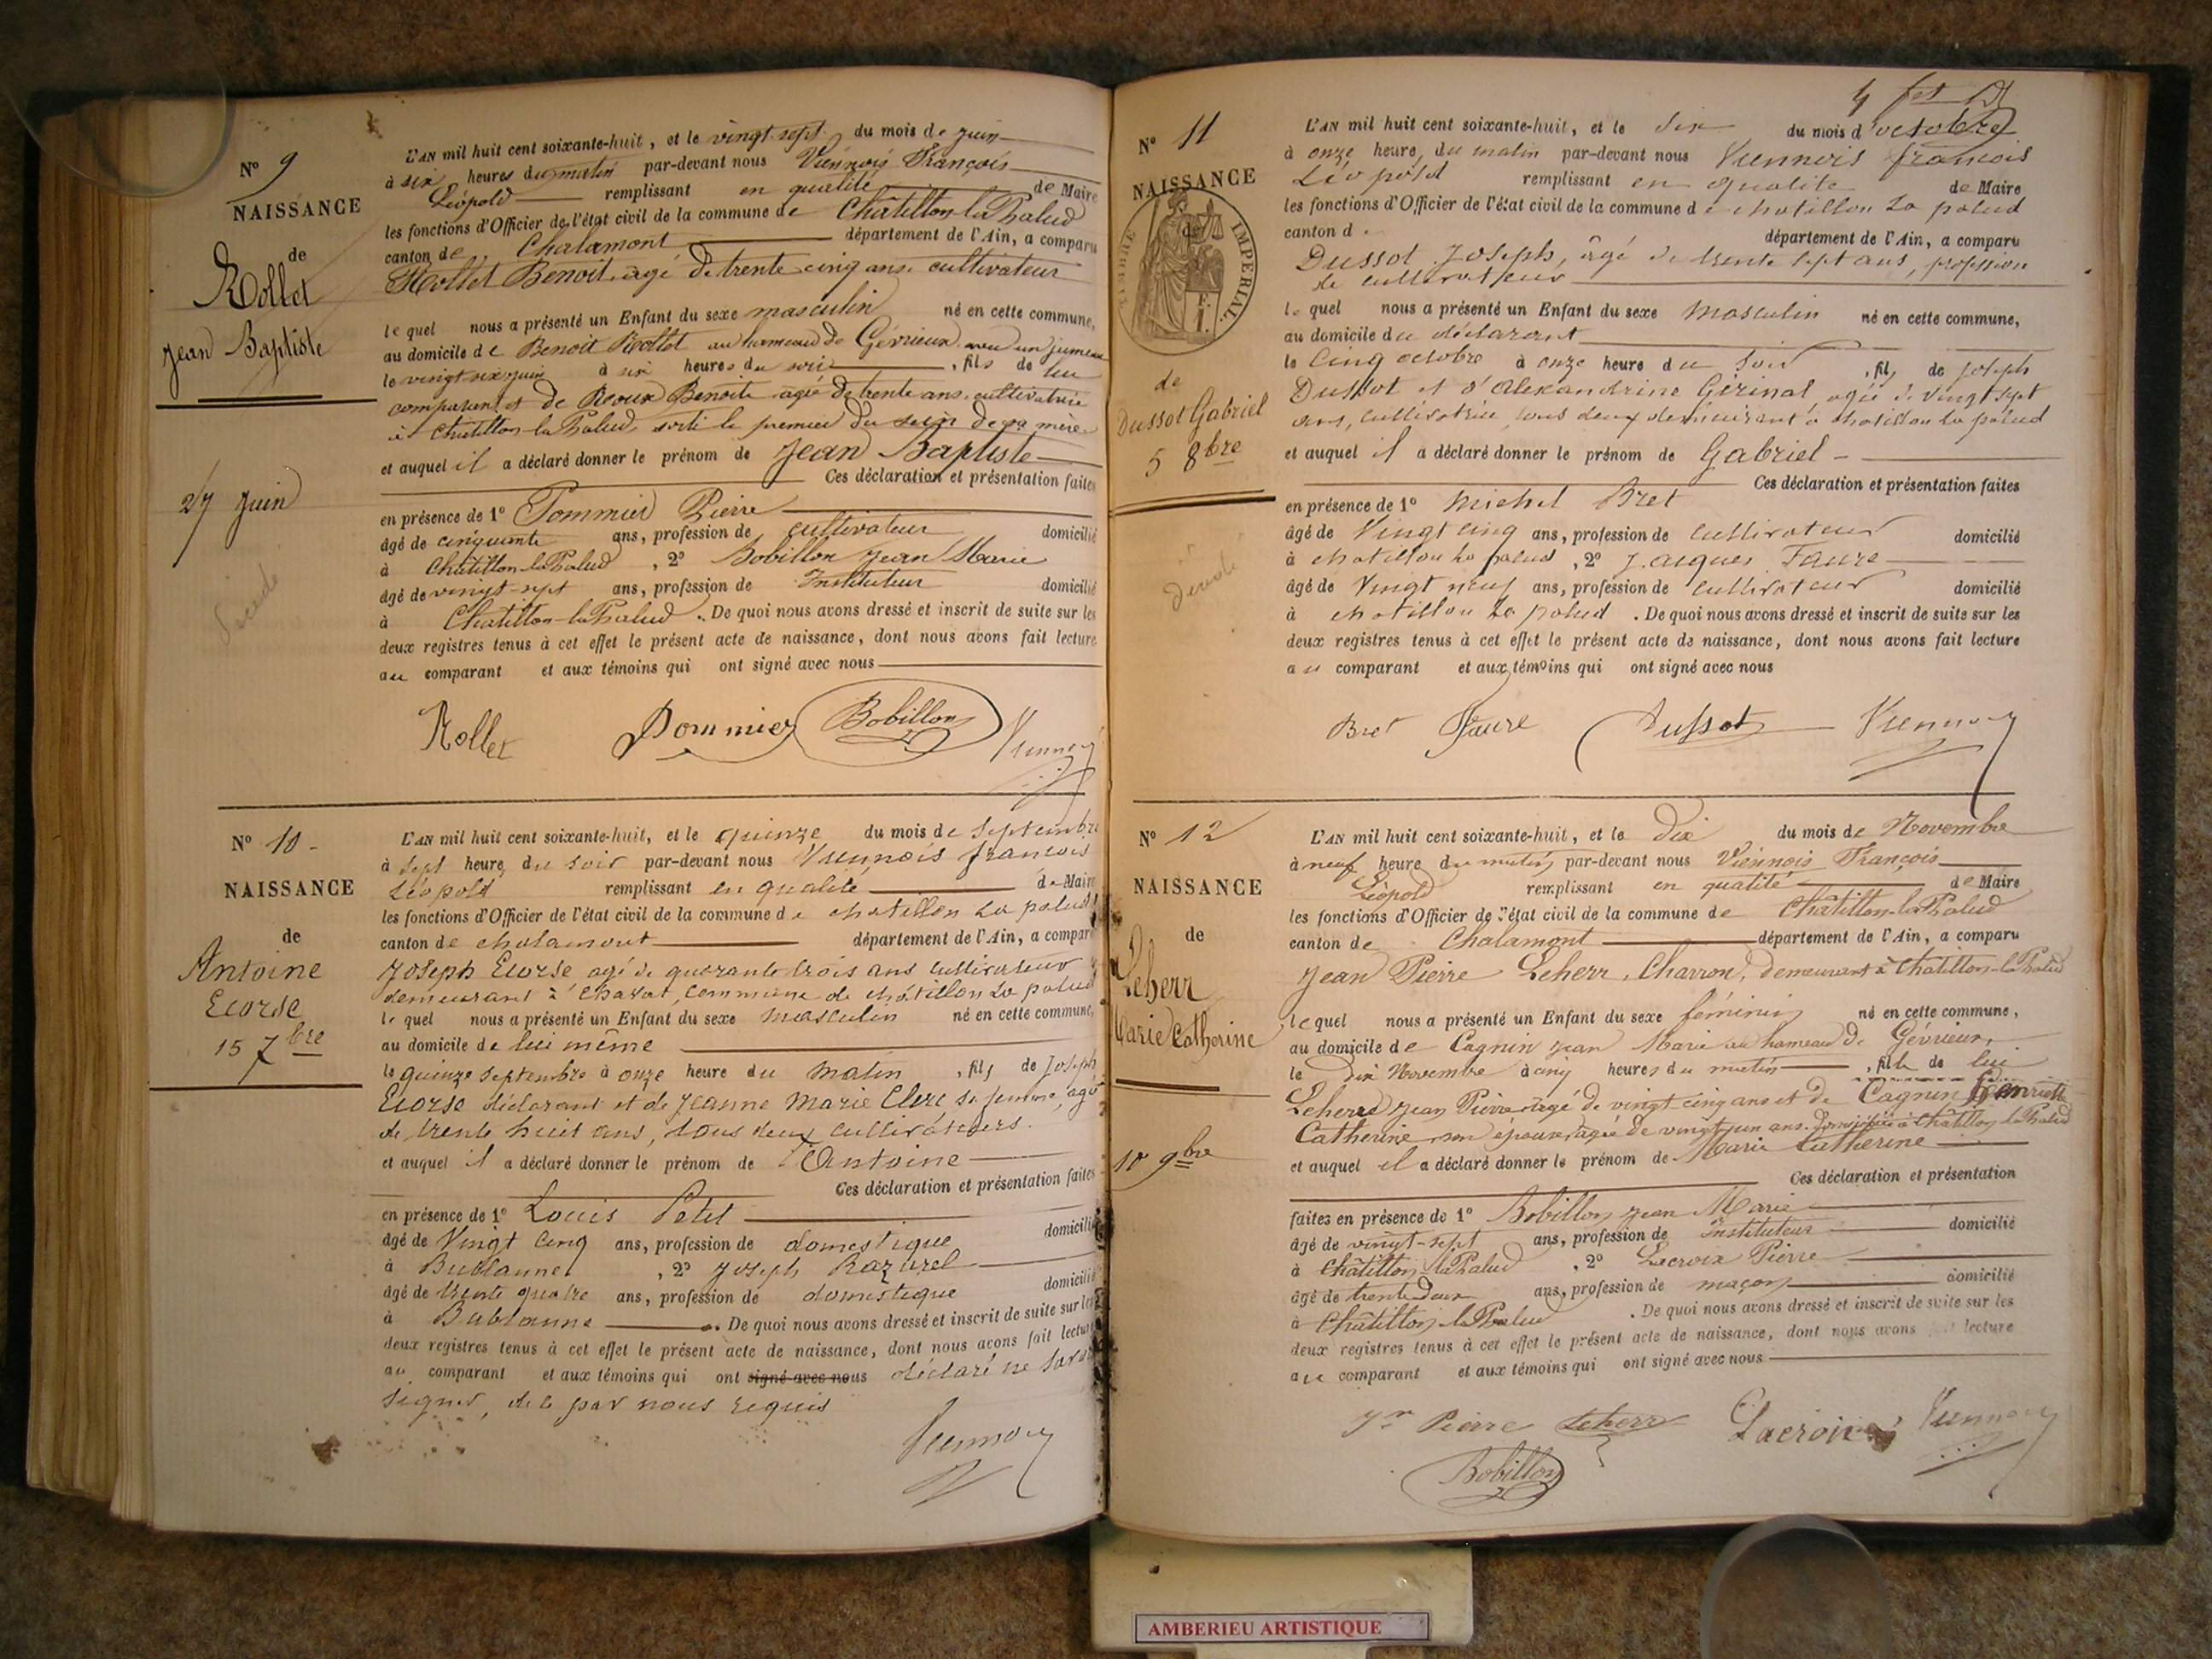 N° 9
NAISSANCE
de
Rollet
Jean Baptiste
27 Juin
Décédé
L'AN mil huit cent soixante-huit, et le vingt-sept du mois de Juin
à six heures du matin par-devant nous Viennois François
Léopold remplissant en qualité de Maire
les fonctions d'Officier de l'état civil de la commune de Châtillon-la-Palud
canton de Chalamont département de l'Ain, a comparu
Rollet Benoit, âgé de trente cinq ans, cultivateur
lequel nous a présenté un Enfant du sexe masculin né en cette commune,
au domicile de Benoit Rollet au hameau de Gévrieux avec un jumeau
le vingt six juin à six heures du soir, fils de lui
comparant et de Roux Benoite agée de trente ans, cultivatrice
à Châtillon-la-Palud, sorti le premier du sein de sa mère
et auquel il a déclaré donner le prénom de Jean Baptiste
Ces déclaration et présentation faites
en présence de 1° Pommier Pierre
âgé de cinquante ans, profession de cultivateur domicilié
à Châtillon-la-Palud, 2° Bobillon Jean Marie
âgé de vingt-sept ans, profession de Instituteur domicilié
à Châtillon-la-Palud. De quoi nous avons dressé et inscrit de suite sur les
deux registres tenus à cet effet le présent acte de naissance, dont nous avons fait lecture
au comparant et aux témoins qui ont signé avec nous
Rollet Pommier Bobillon Viennois
N° 10
NAISSANCE
de
Antoine
Ecorse
15 7bre
L'AN mil huit cent soixante-huit, et le quinze du mois de Septembre
à sept heure du soir par-devant nous Viennois françois
Léopold remplissant en qualité de Maire
les fonctions d'Officier de l'état civil de la commune de chatillon la palud
canton de chalamont département de l'Ain, a comparu
Joseph Ecorse agé de quarante trois ans cultivateur
demeurant à commune de châtillon la palud
lequel nous a présenté un Enfant du sexe masculin né en cette commune,
au domicile de lui même
le quinze septembre à onze heure du matin, fils de Joseph
Ecorse déclarant et de Jeanne Marie Clerc sa femme, agé
de trente huit ans, tous deux cultivateurs.
et auquel il a déclaré donner le prénom de Antoine
Ces déclaration et présentation faites
en présence de 1° Louis Petit
âgé de Vingt Cinq ans, profession de domestique domicilié
à Bublanne, 2° Joseph Razurel
âgé de trente quatre ans, profession de domestique domicilié
à Bublanne. De quoi nous avons dressé et inscrit de suite sur les
deux registres tenus à cet effet le présent acte de naissance, dont nous avons fait lecture
au comparant et aux témoins qui ont signé avec nous déclaré ne savoir
signer, de ce par nous requis
Viennois
4
N° 11
NAISSANCE
de
TIMBRE IMPERIAL
de
Dussot Gabriel
5 8bre
Décédé
L'AN mil huit cent soixante-huit, et le Six du mois d'octobre
à onze heure, du matin par-devant nous Viennois françois
Léopold remplissant en qualité de Maire
les fonctions d'Officier de l'état civil de la commune de chatillon La palud
canton d département de l'Ain, a comparu
Dussot Joseph, âgé de trente sept ans, profession
de cultivateur
lequel nous a présenté un Enfant du sexe Masculin né en cette commune,
au domicile du déclarant
le Cinq octobre à onze heure du soir, fils de Joseph
Dussot et d'Alexandrine Gérinal, agée de Vingt sept
ans, cultivatrice, tous deux demeurant à chatillon la palud
et auquel il a déclaré donner le prénom de Gabriel
Ces déclaration et présentation faites
en présence de 1° Michel Bret
âgé de Vingt cinq ans, profession de cultivateur domicilié
à chatillon la palud, 2° Jacques Faure
âgé de Vingt neuf ans, profession de cultivateur domicilié
à chatillon La palud. De quoi nous avons dressé et inscrit de suite sur les
deux registres tenus à cet effet le présent acte de naissance, dont nous avons fait lecture
au comparant et aux témoins qui ont signé avec nous
Bret Faure Dussot Viennois
N° 12
NAISSANCE
de
Leherr
Marie Catherine
10 9bre
L'AN mil huit cent soixante-huit, et le Dix du mois de Novembre
à neuf heure du matin, par-devant nous Viennois François
Léopold remplissant en qualité de Maire
les fonctions d'Officier de l'état civil de la commune de Châtillon-la-Palud
canton de Chalamont département de l'Ain, a comparu
Jean Pierre Leherr, Charron, demeurant à Châtillon-la-Palud
lequel nous a présenté un Enfant du sexe féminin né en cette commune,
au domicile de Cagnin Jean Marie au hameau de Gévrieux,
le dix Novembre à cinq heures du matin, fille de lui
Leherr Jean Pierre âgé de vingt-cinq ans et de Cagnin Henriette
Catherine son épouse, agée de vingt-un ans. Domiciliés à Châtillon-la-Palud
et auquel il a déclaré donner le prénom de Marie Catherine
Ces déclaration et présentation
faites en présence de 1° Bobillon Jean Marie
âgé de vingt-sept ans, profession de Instituteur domicilié
à Châtillon-la-Palud, 2° Lacroix Pierre
âgé de trente Deux ans, profession de maçon domicilié
à Châtillon-la-Palud. De quoi nous avons dressé et inscrit de suite sur les
deux registres tenus à cet effet le présent acte de naissance, dont nous avons fait lecture
au comparant et aux témoins qui ont signé avec nous
Jn Pierre Leherr Lacroix Viennois
Bobillon
AMBERIEU ARTISTIQUE